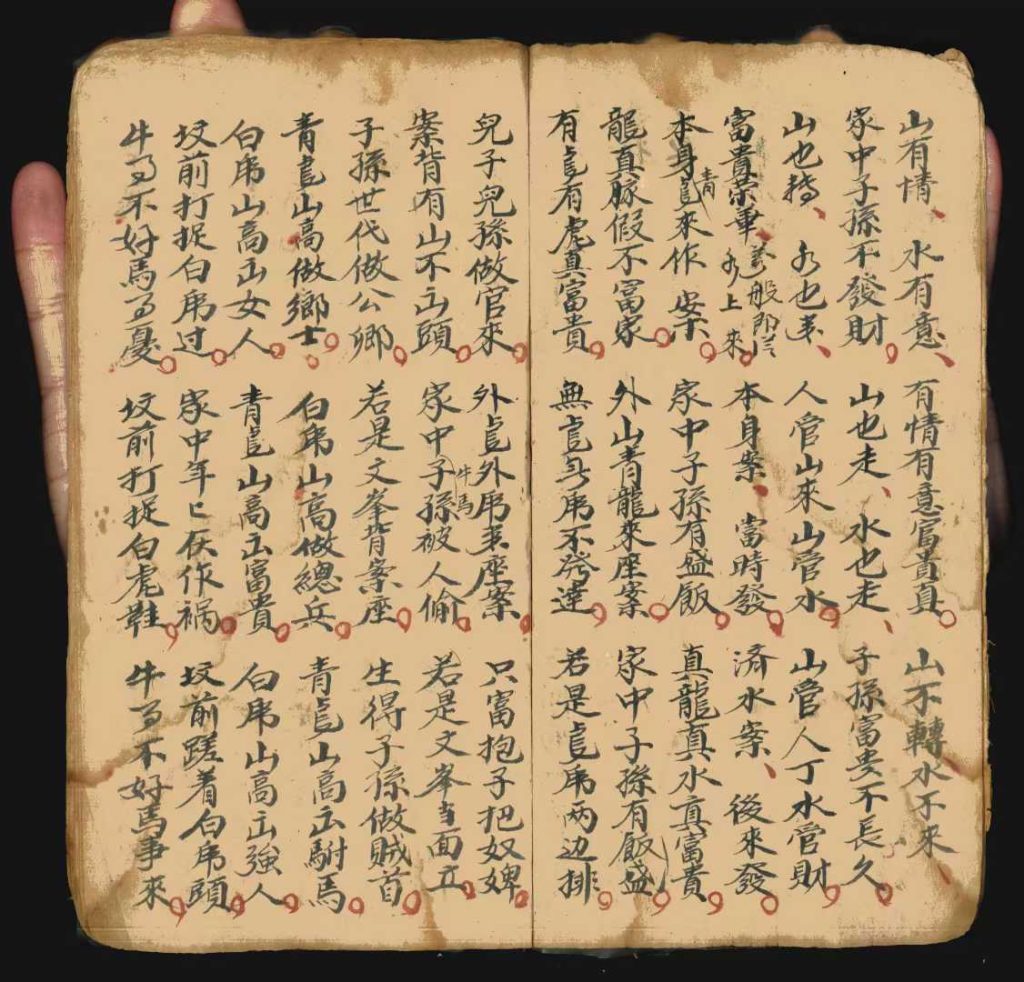 山有情、水有意、有情有意富貴真。山不轉水不來、
家中子孫不發財。山也走、水也走、子孫富貴不長久。
山也 水也 人管山來山管水。山管人丁水管財。
富貴榮華、萬般 水上來。本身案、當時發。済水案、後來發。
本身青竜來作案。家中子孫有盛飯。真龍真水真富貴。
龍真脉假不富家。外山青龍來座案。家中子孫有飯盛。
有竜有虎真富貴。無竜无乕不発達。若是竜乕両边排。
兒子兒孫做官來。外竜外乕來座案。只富抱子把奴婢。
案背有山不出頭。家中子孫牛馬被人偷。若是文峯当面立。
子孫世代做公卿。若是文峯背案座。生得子孫做賊首。
青竜山高做鄉士。白乕山高做總兵。青竜山高出駙馬。
白乕山高出女人。青竜山高出富貴。白乕山高出強人。
坟前打捉白乕过。家中年匕 作禍。坟前蹉着白乕頭。
牛 不好馬 憂。坟前打捉白虎鞋。牛 不好馬事來。